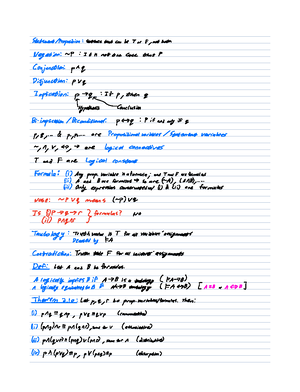 Statement/Proposition: sentence that can be T or F, not both
Negation: ~P : It is not the case that P
Conjunction: p∧q
Disjunction: p∨q
Implication: p → q : If p, then q
Hypothesis Conclusion
Bi-implication / Biconditional: p↔q : p if and only if q
p, q, ... & p₁, p₂, ... are Propositional variables / Statement variables
~, ∧, ∨, →, ↔ are logical connectives
T and F are logical constant
Formula: (i) Any prop. variable is a formula; and T and F are formulas
(ii) A and B are formulas → so are (~A), (A∧B), ...
(iii) Only expression constructed by (i) & (ii) are formulas
Note: ~p ∨ q means (~p)∨q
Is (i) p → q → r } formulas? No
(ii) p∧q∨r
Tautology: Truth value is T for all variable assignments
Denoted by ⊨A
Contradiction: Truth table F for all variable assignments
Def: Let A and B be formulas.
A logically implies B if A→B is a tautology (⊨A→B)
A logically equivalent to B if A↔B tautology (⊨A↔B)
Theorem 2.1.0: Let p, q, r be prop. variables/formulas. Then:
(i) p∧q ≡ q∧p , p∨q ≡ q∨p (commutative)
(ii) (p∧q)∧r ≡ p∧(q∧r), same for ∨ (associative)
(iii) p∧(q∨r) ≡ (p∧q)∨(p∧r), same for ∧ (distributive)
(iv) p∧(p∨q) ≡ p, p∨(p∧q) ≡ p (absorption)